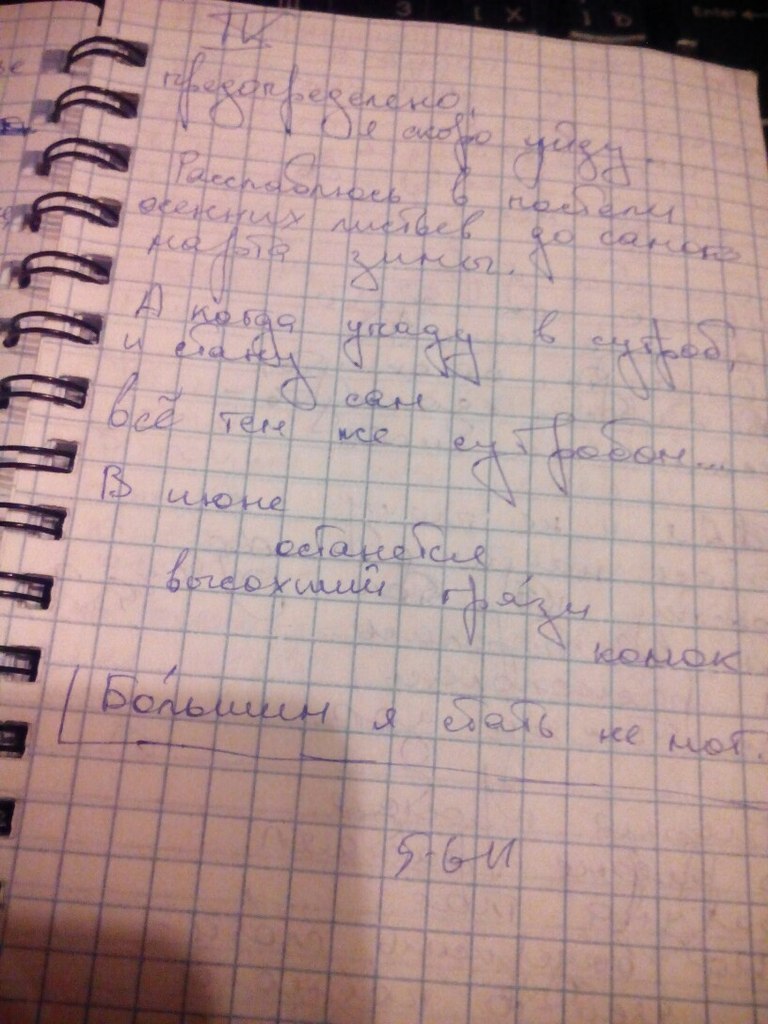 ТК
предопределено,
я скоро уйду.
Расслаблюсь в постели
осенних листьев до самого
марта зимы.
А когда упаду в сугроб,
и стану
сам
всё тем же сугробом...
В июне
останется
высохший гря́зи
комок
Бо́льшим я стать не мог.
5-6-11